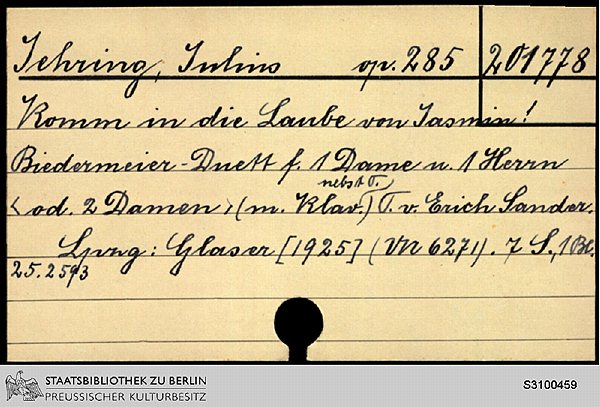 Jehring, Julius op. 285 201778
Komm in die Laube von Jasmin!
Biedermeier-Duett f. 1 Dame u. 1 Herrn
nebst T.
<od. 2 Damen> (m. Klav.) T. v. Erich Sander.
Lpzg: Glaser [1925] (VN 6271). 7 S., 1 Bl.
25.2593
STAATSBIBLIOTHEK ZU BERLIN
PREUSSISCHER KULTURBESITZ
S3100459